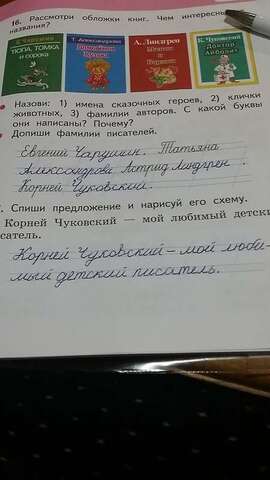 16. Рассмотри обложки книг. Чем интересны
названия?
Е. Чарушин
ТЮПА, ТОМКА
и сорока
Т. Александрова
Домовёнок
Кузька
А. Линдгрен
Малыш и
Карлсон
К. Чуковский
Доктор
Айболит
● Назови: 1) имена сказочных героев, 2) клички
животных, 3) фамилии авторов. С какой буквы
они написаны? Почему?
● Допиши фамилии писателей.
Евгений Чарушин. Татьяна
Александрова Астрид Линдгрен.
Корней Чуковский.
Спиши предложение и нарисуй его схему.
Корней Чуковский — мой любимый детски
сатель.
Корней Чуковский – мой люби-
мый детский писатель.